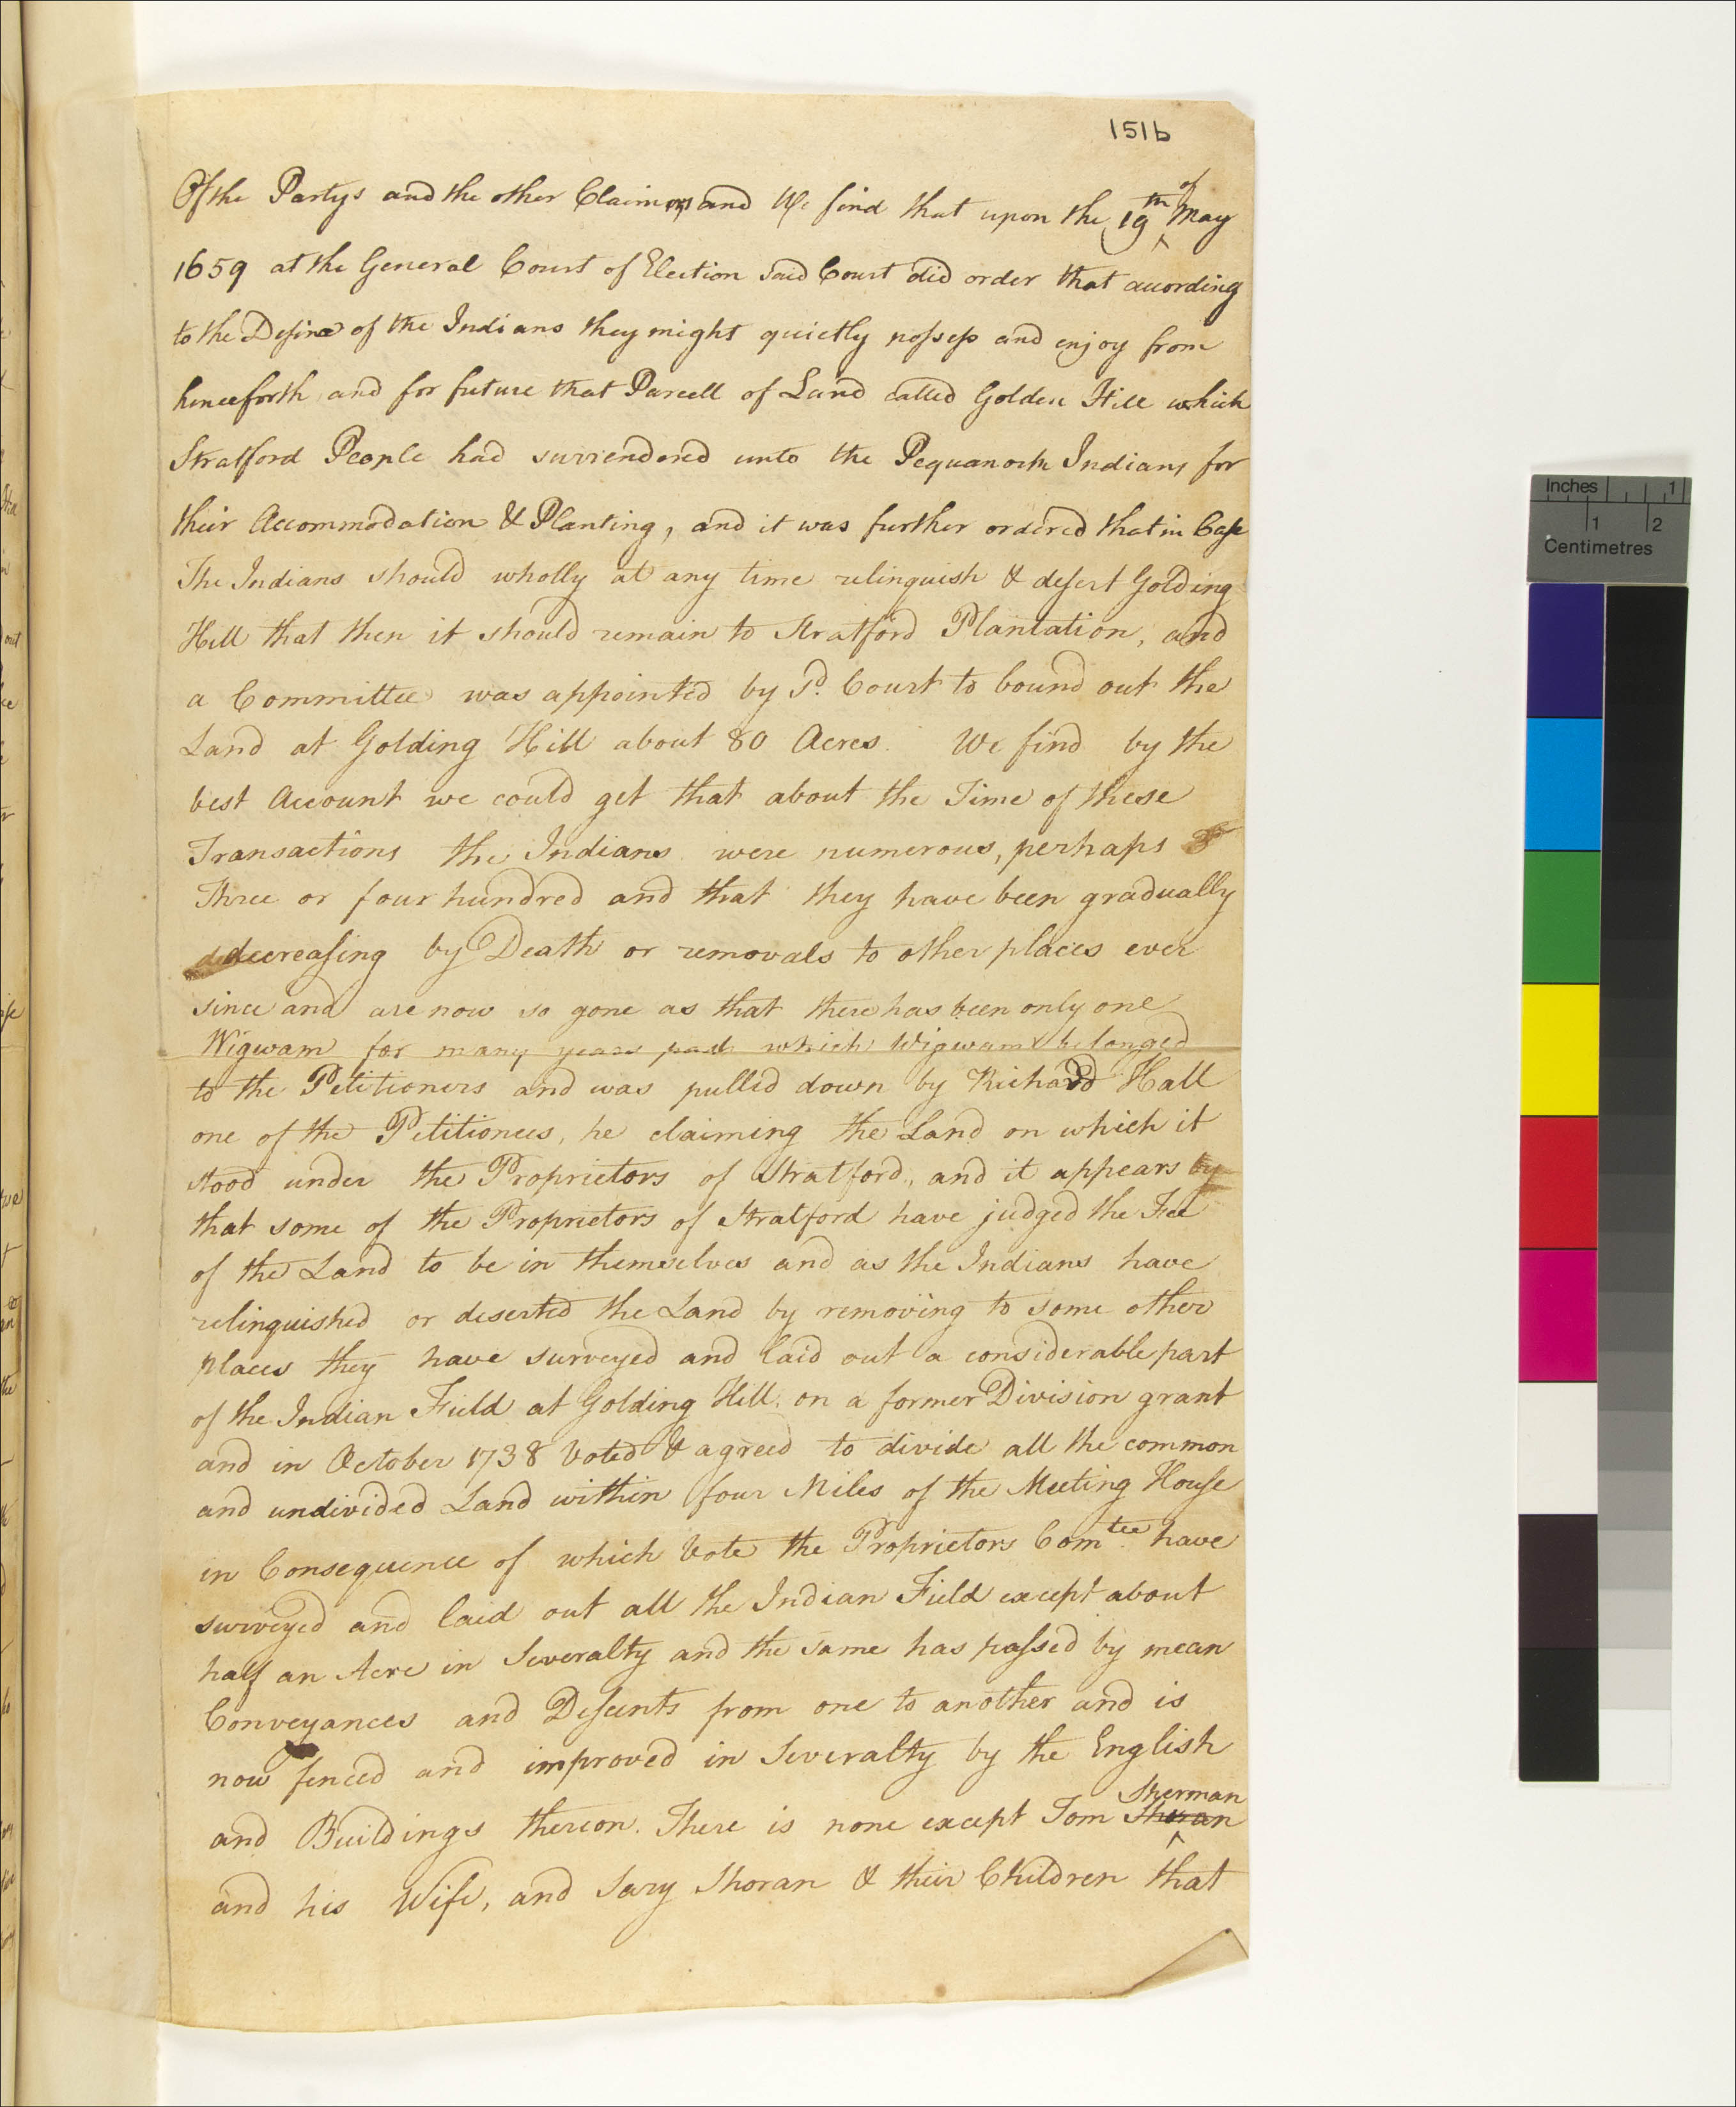 151b
Of the Partys and the other Claimers and We find that upon the 19th of May
1659 at the General Court of Election said Court did order that according
to the Desire of the Indians they might quietly possess and enjoy from
henceforth and for future that Parcell of Land called Golden Hill which
Stratford People had surrendered unto the Pequanock Indians for
their Accommodation & Planting, and it was further ordered that in Case
The Indians should wholly at any time relinquish & desert Golding
Hill that then it should remain to Stratford Plantation, and
a Committee was appointed by Sd. Court to bound out the
Land at Golding Hill about 80 Acres. We find by the
best Account we could get that about the Time of these
Transactions the Indians were numerous, perhaps
Three or four hundred and that they have been gradually
decreasing by Death or removals to other places ever
since and are now so gone as that there has been only one
Wigwam for many years past which Wigwam belonged
to the Petitioners and was pulled down by Richard Hall
one of the Petitionees, he claiming the Land on which it
stood under the Proprietors of Stratford, and it appears by
that some of the Proprietors of Stratford have judged the Fee
of the Land to be in themselves and as the Indians have
relinquished or deserted the Land by removing to some other
places they have surveyed and laid out a considerable part
of the Indian Field at Golding Hill, on a former Division grant
and in October 1738 Voted & agreed to divide all the common
and undivided Land within four Miles of the Meeting House
in Consequence of which Vote the Proprietors Comtee. have
surveyed and laid out all the Indian Field except about
half an Acre in Severalty and the same has passed by mean
Conveyances and Descents from one to another and is
now fenced and improved in Severalty by the English
and Buildings thereon. There is none except Tom Shoran Sherman
and his Wife, and Sary Shoran & their Children that
Inches 1
1 2
Centimetres